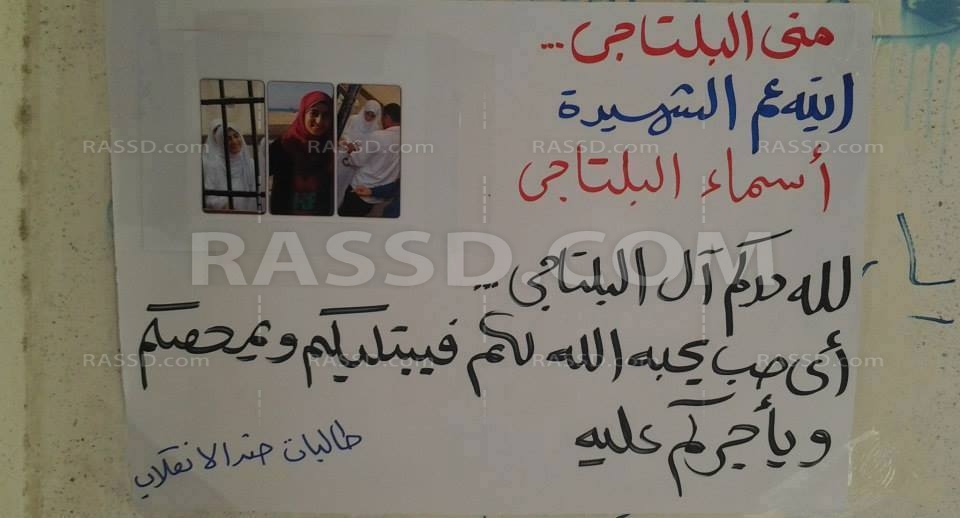 منى البلتاجى ...
ابنة عم الشهيدة
أسماء البلتاجى
لله دركم آل البلتاجى ...
أى حب يحبه الله لكم فيبتليكم ويمحصكم
ويأجركم عليه
طالبات ضد الانقلاب
RASSD.com RASSD.com RASSD.com RASSD.com
RASSD.COM
RASSD.com RASSD.com RASSD.com RASSD.com